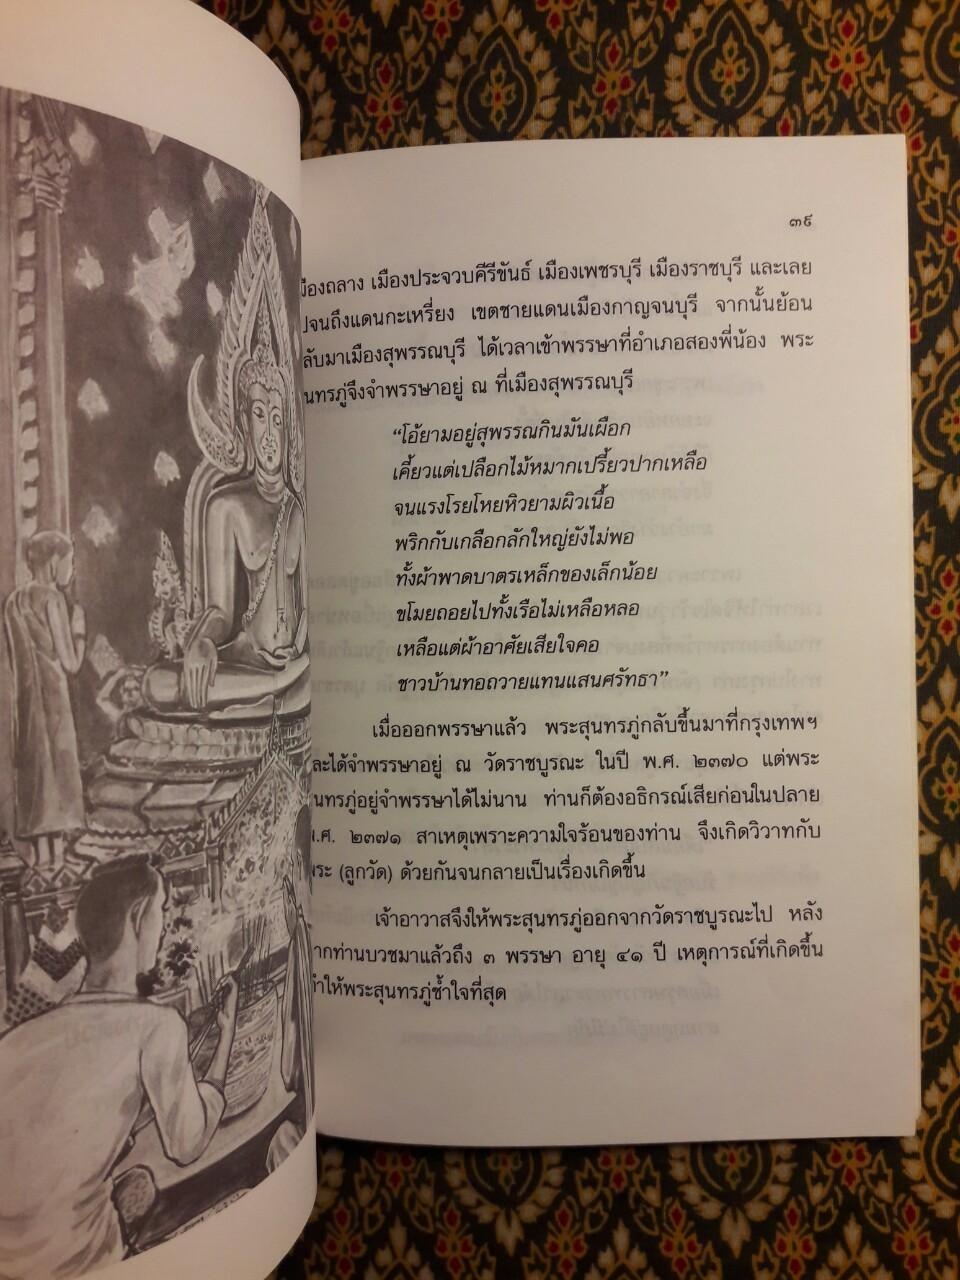 ๓๙
เมืองถลาง เมืองประจวบคีรีขันธ์ เมืองเพชรบุรี เมืองราชบุรี และเลย
ไปจนถึงแดนกะเหรี่ยง เขตชายแดนเมืองกาญจนบุรี จากนั้นย้อน
กลับมาเมืองสุพรรณบุรี ได้เวลาเข้าพรรษาที่อำเภอสองพี่น้อง พระ
สุนทรภู่จึงจำพรรษาอยู่ ณ ที่เมืองสุพรรณบุรี
“โอ้ยามอยู่สุพรรณกินมันเผือก
เคี้ยวแต่เปลือกไม้หมากเปรี้ยวปากเหลือ
จนแรงโรยโหยหิวยามผิวเนื้อ
พริกกับเกลือกลักใหญ่ยังไม่พอ
ทั้งผ้าพาดบาตรเหล็กของเล็กน้อย
ขโมยถอยไปทั้งเรือไม่เหลือหลอ
เหลือแต่ผ้าอาศัยเสียใจคอ
ชาวบ้านทอถวายแทนแสนศรัทธา”
เมื่อออกพรรษาแล้ว พระสุนทรภู่กลับขึ้นมาที่กรุงเทพฯ
และได้จำพรรษาอยู่ ณ วัดราชบูรณะ ในปี พ.ศ. ๒๓๗๐ แต่พระ
สุนทรภู่อยู่จำพรรษาได้ไม่นาน ท่านก็ต้องอธิกรณ์เสียก่อนในปลาย
พ.ศ. ๒๓๗๑ สาเหตุเพราะความใจร้อนของท่าน จึงเกิดวิวาทกับ
พระ (ลูกวัด) ด้วยกันจนกลายเป็นเรื่องเกิดขึ้น
เจ้าอาวาสจึงให้พระสุนทรภู่ออกจากวัดราชบูรณะไป หลัง
จากท่านบวชมาแล้วถึง ๓ พรรษา อายุ ๔๑ ปี เหตุการณ์ที่เกิดขึ้น
ทำให้พระสุนทรภู่ช้ำใจที่สุด